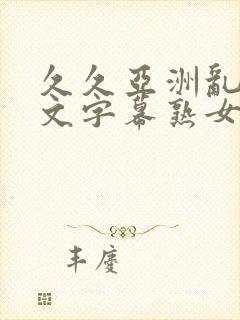 久久亞洲亂
文字幕熟女
丰慶